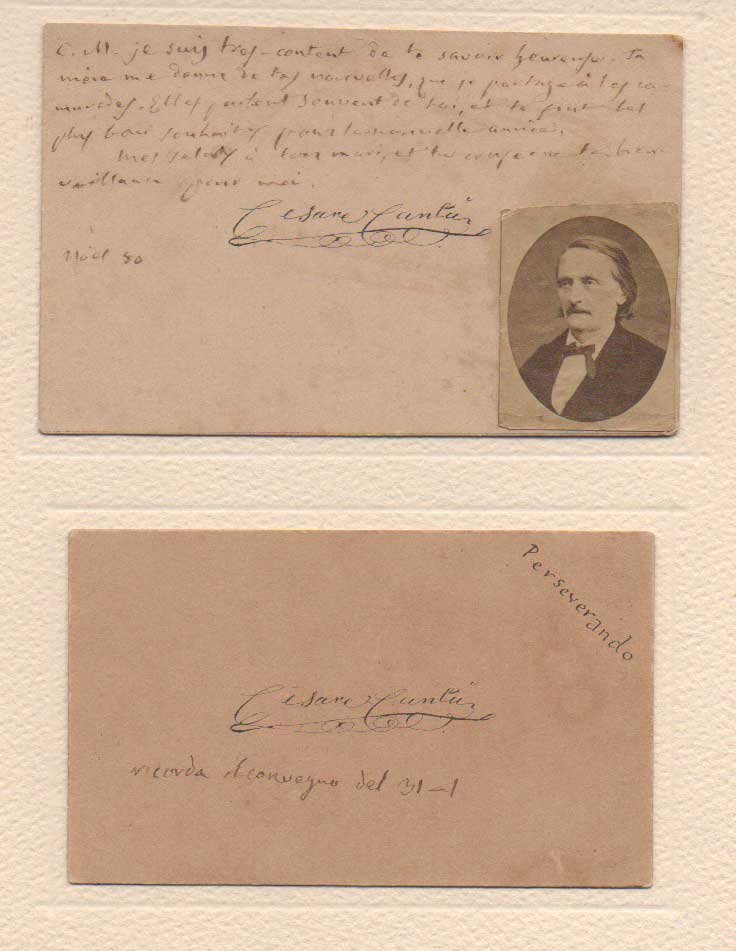 C. M. je suis très-content de te savoir heureuse. Ta
mère me donne de tes nouvelles, que je partage à tes ca-
marades. Elles parlent souvent de toi, et te font les
plus bons souhaits pour la nouvelle année.
Mes saluts à ton mari, et
pour moi.
Cesare Cantù
Noël 80
Perseverando
Cesare Cantù
ricorda il convegno del 31-1